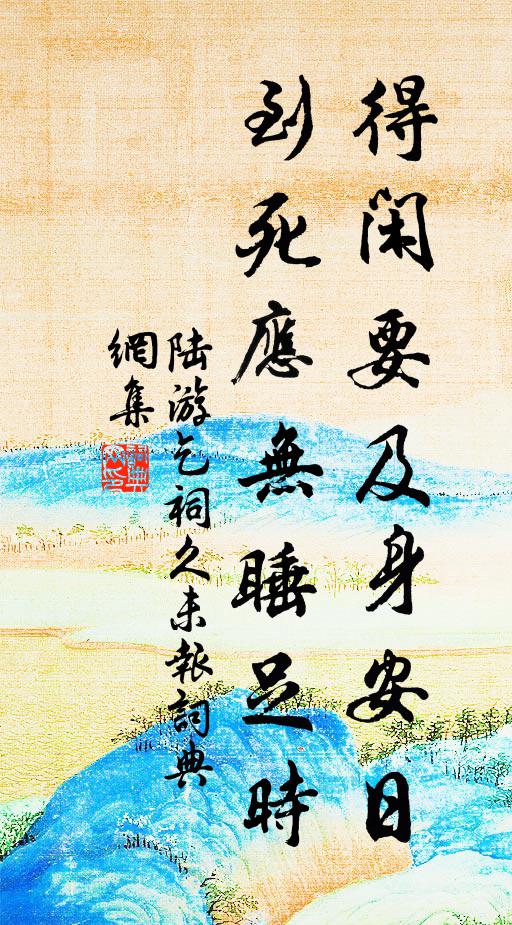 得閑要及身安日
到死應無睡足時
陆游乞祠久未報詞典
網集